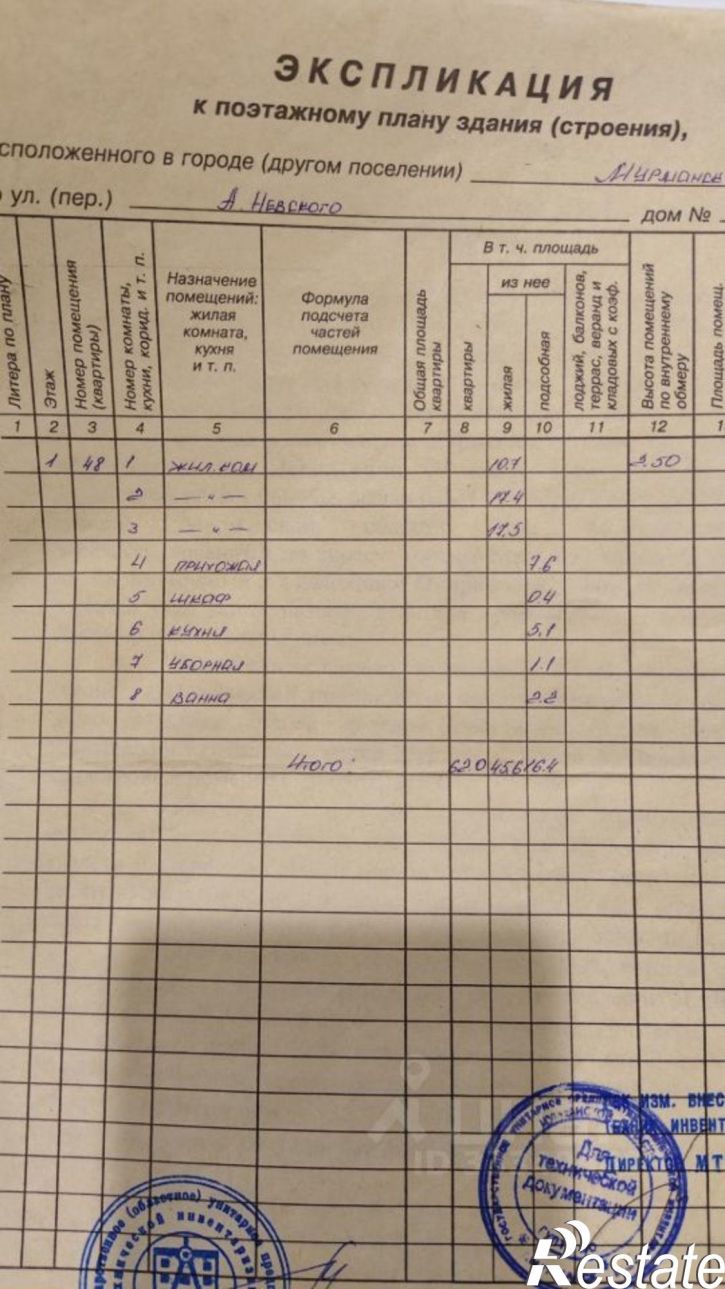 ЭКСПЛИКАЦИЯ
к поэтажному плану здания (строения),
сположенного в городе (другом поселении) Мурманск
ул. (пер.) А. Невского дом №
Литера по плану
Этаж
Номер помещения (квартиры)
Номер комнаты, кухни, корид. и т. п.
Назначение помещений: жилая комната, кухня и т. п.
Формула подсчета частей помещения
Общая площадь квартиры
В т. ч. площадь
квартиры
из нее
жилая
подсобная
лоджий, балконов, террас, веранд и кладовых с коэф.
Высота помещений по внутреннему обмеру
Площадь помещ.
1 2 3 4 5 6 7 8 9 10 11 12 1
1 48 1 жил. ком 10.7 2.50
2 — „ — 17.4
3 — „ — 17.5
4 прихожая 7.6
5 шкаф 0.4
6 кухня 5.1
7 уборная 1.1
8 ванна 2.2
Итого: 62.0 45.6 16.4
ИЗМ. ВНЕС
ТЕХНИК ИНВЕНТ
ДИРЕКТОР МТ
Для
технической
документации
(областное) унитарное
технической инвентариз
Restate